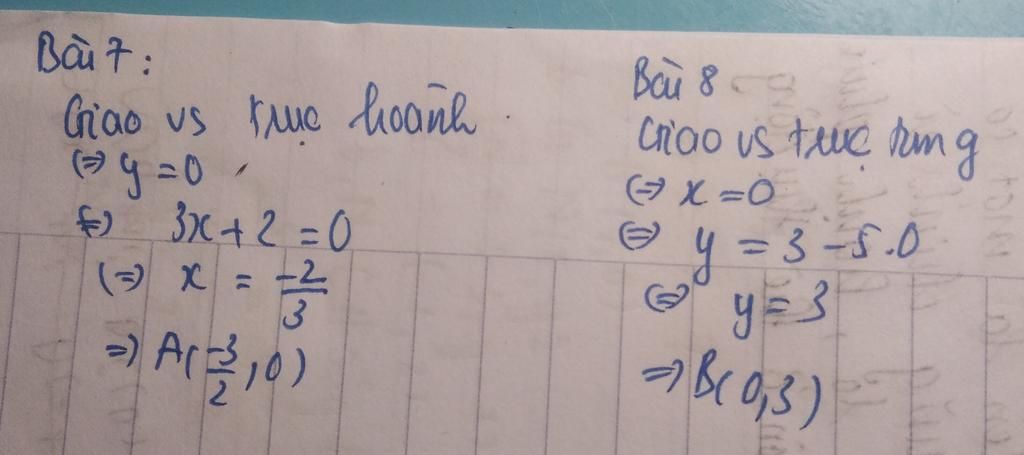 Bài 7:
Giao vs trục hoành
(=) y = 0
(=) 3x + 2 = 0
(=) x = -2/3
=) A(-3/2, 0)
Bài 8
Giao vs trục tung
(=) x = 0
(=) y = 3 - 5.0
(=) y = 3
=) B(0,3)